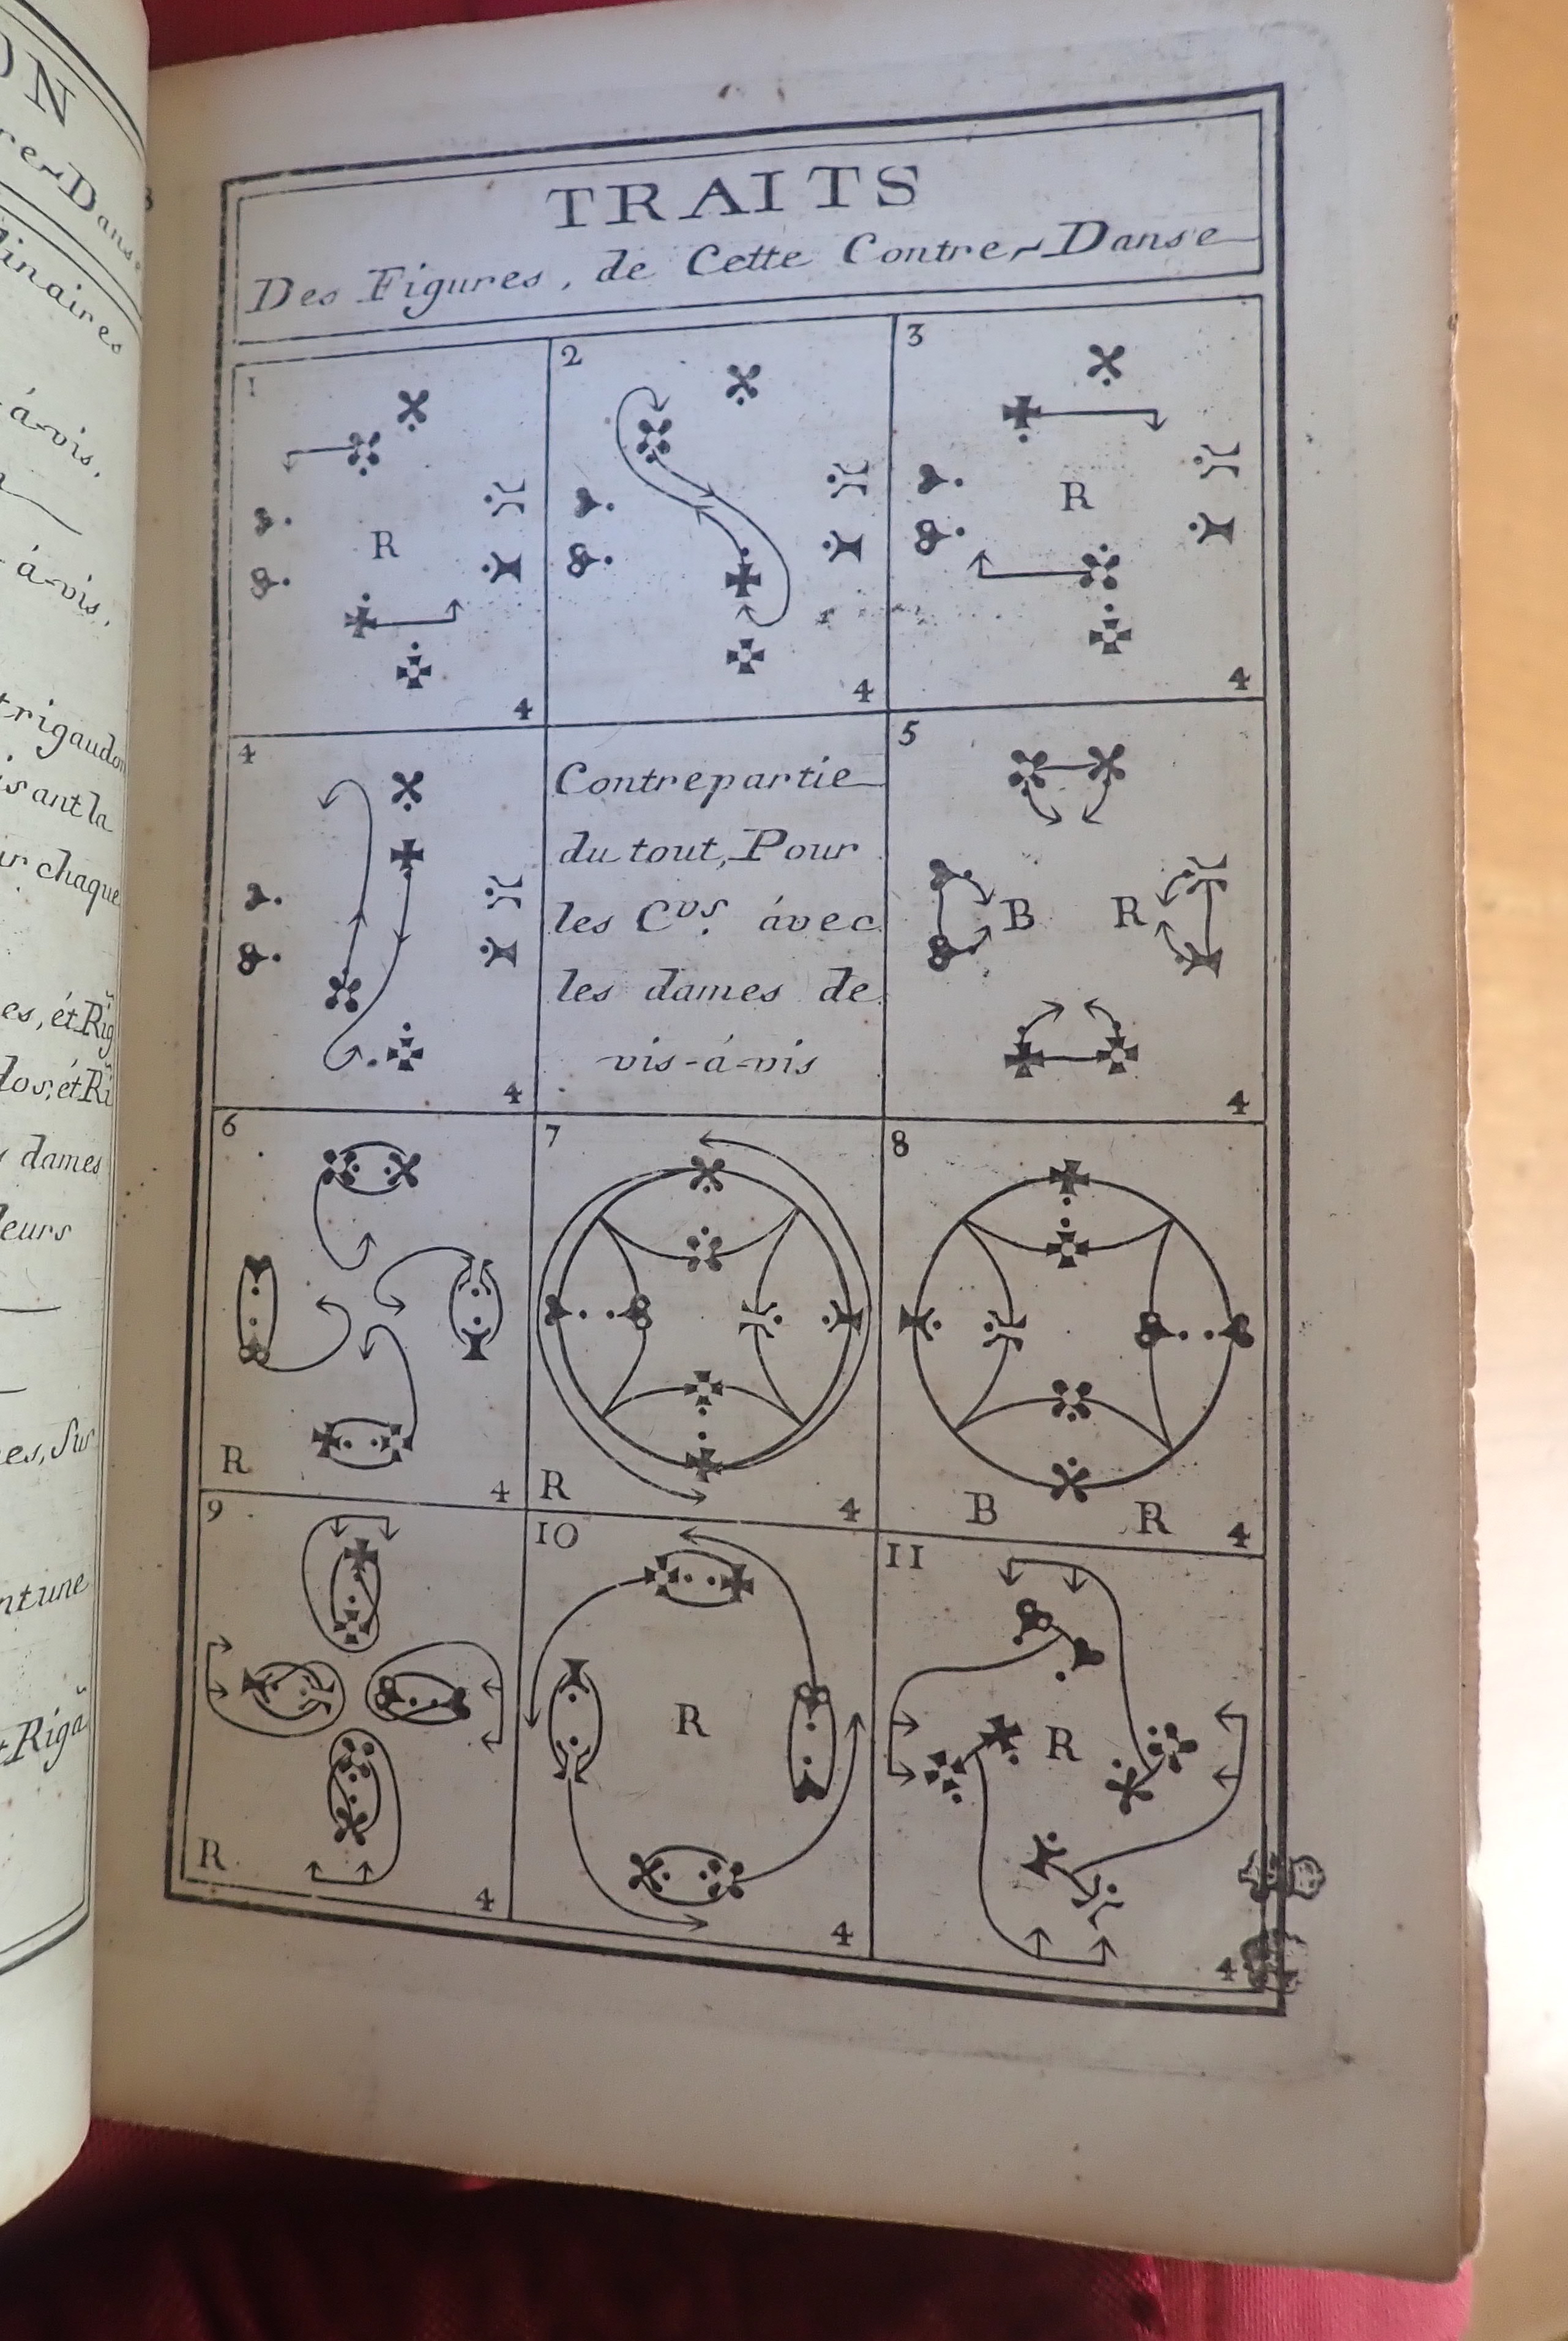 ON
re-Danse
inaires
á-vis,
á-vis,
rigaudon
isant la
chaque
es, ét Rig
los, ét Ri
dames
leurs
es, sur
TRAITS
Des Figures, de Cette Contre-Danse
1
R
4
2
4
3
R
4
4
4
Contrepartie
du tout, Pour
les Cvs. ávec
les dames de
vis-á-vis
5
B R
4
6
R
4
7
R
4
8
B R
4
9
R
4
10
R
4
11
R
4